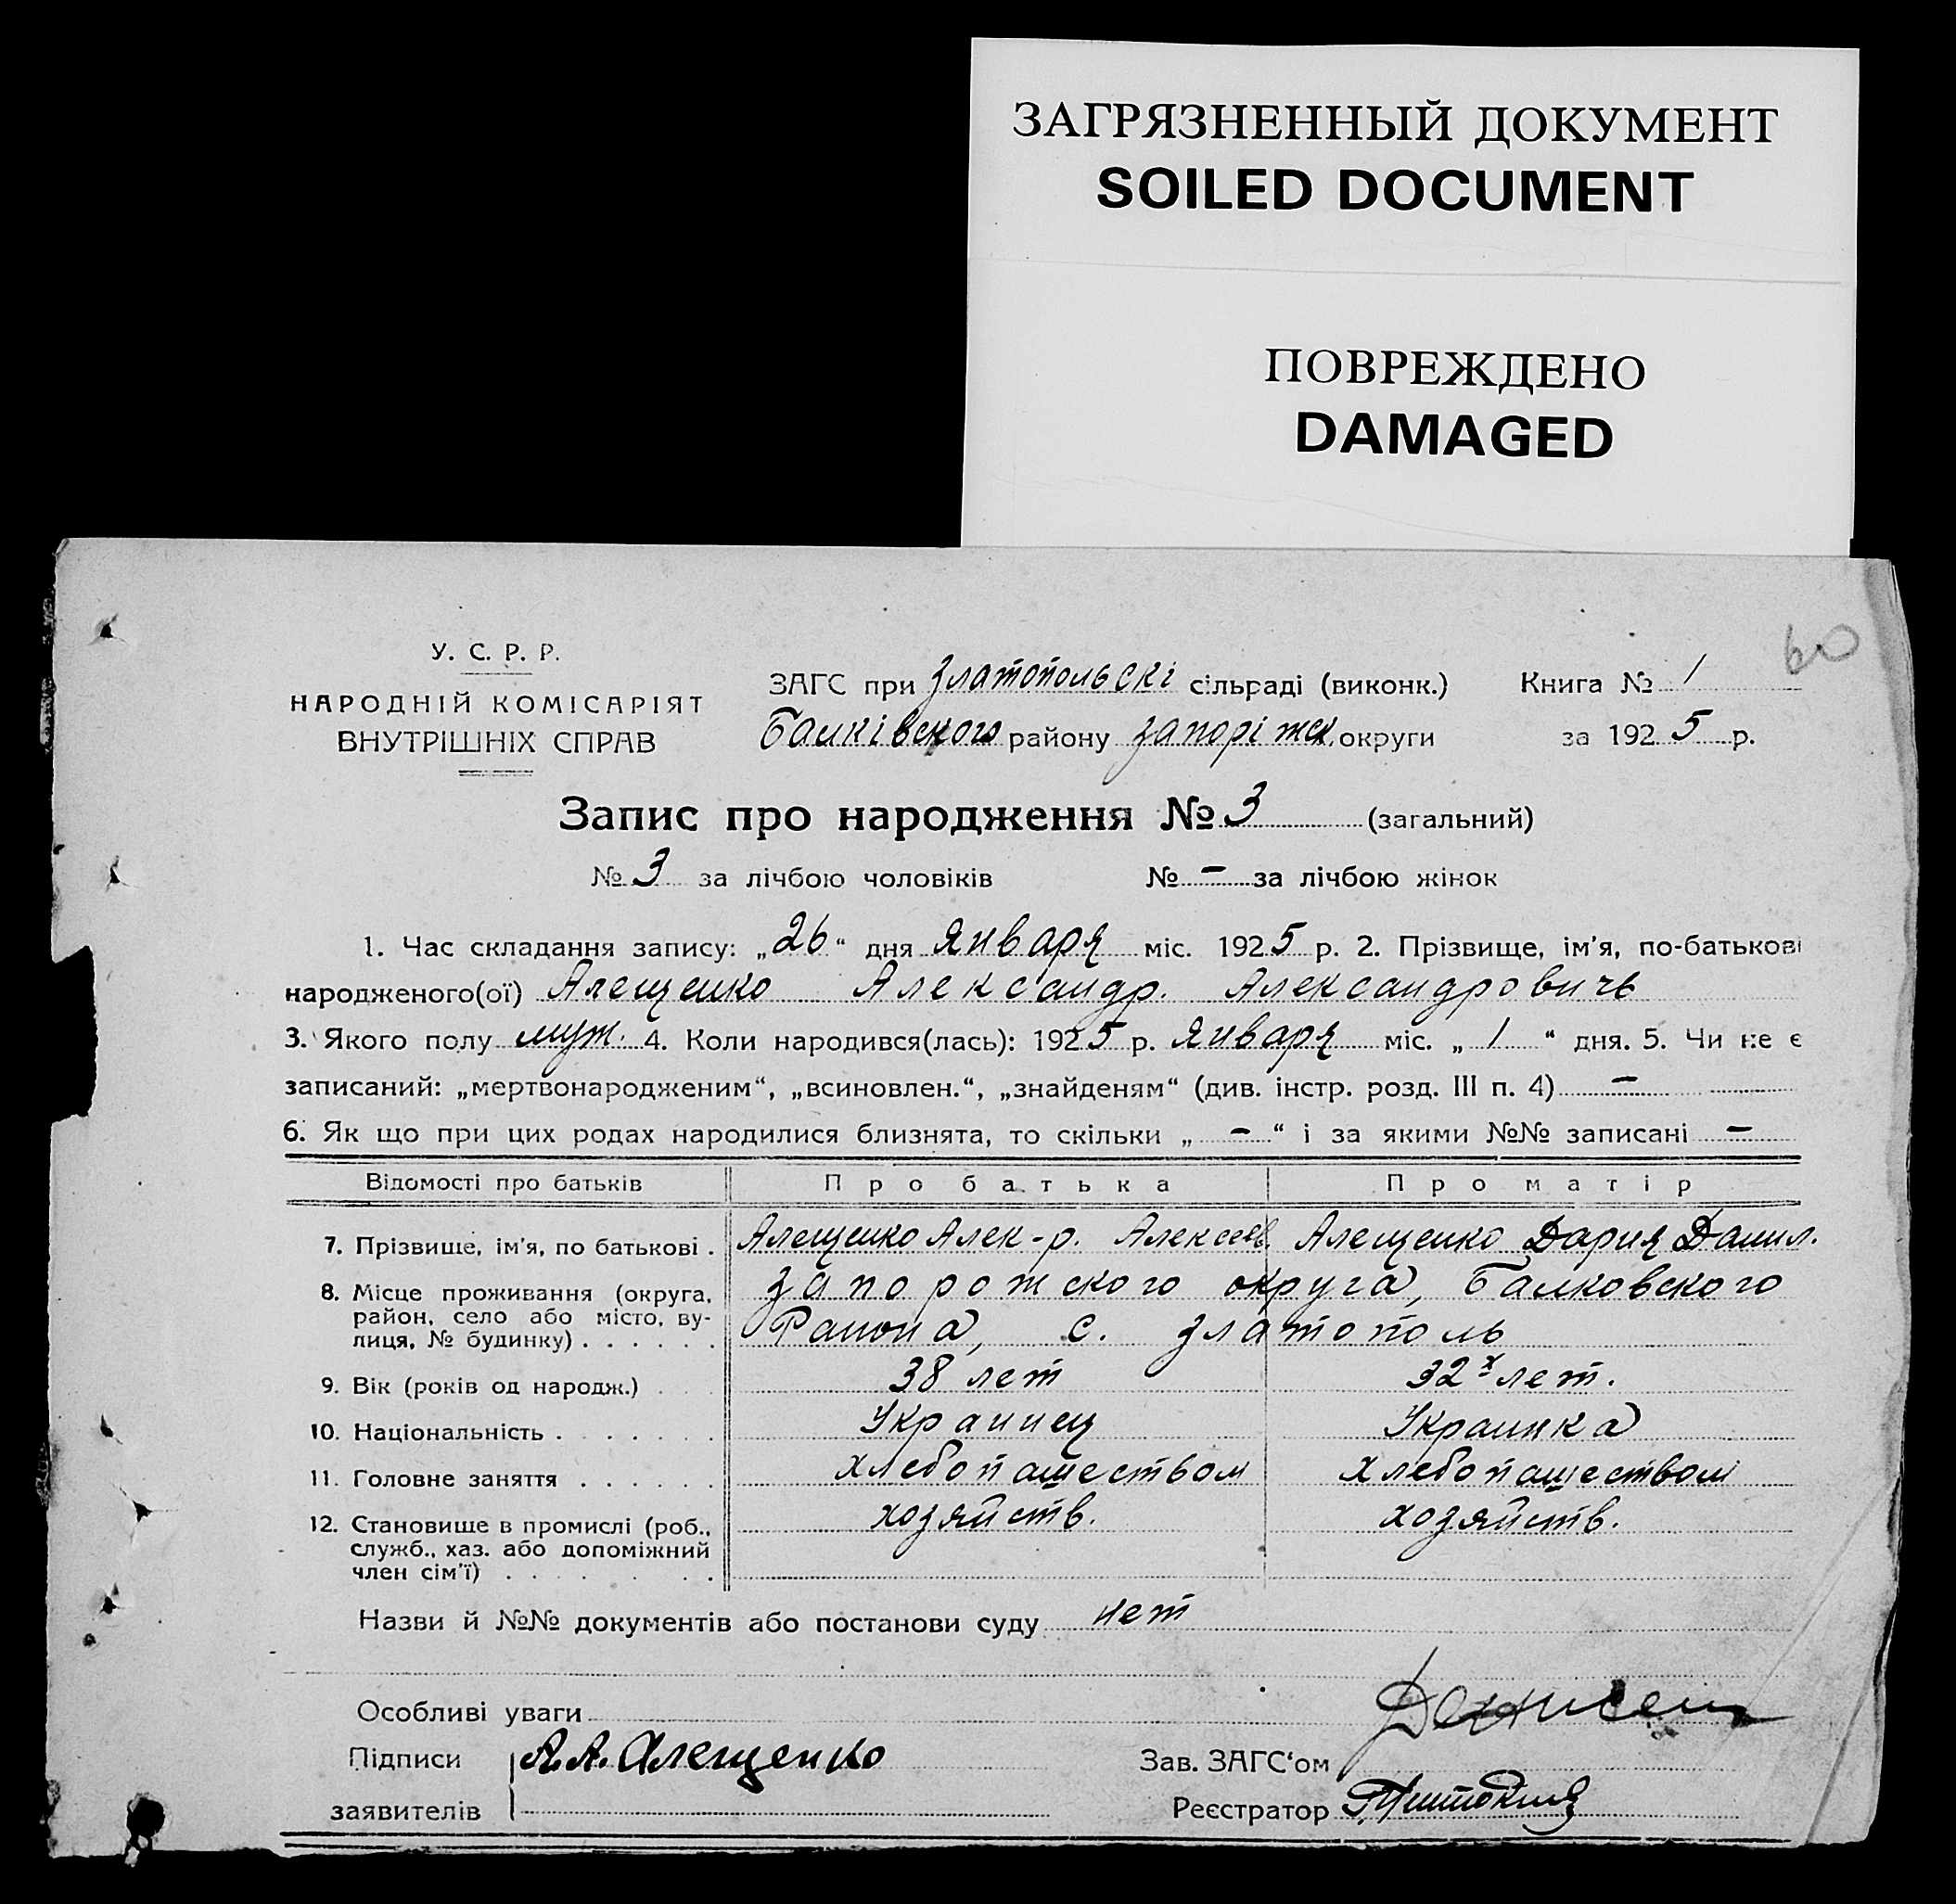 ЗАГРЯЗНЕННЫЙ ДОКУМЕНТ
SOILED DOCUMENT
ПОВРЕЖДЕНО
DAMAGED
60
У. С. Р. Р.
НАРОДНІЙ КОМІСАРІЯТ
ВНУТРІШНІХ СПРАВ
ЗАГС при Златопольскі сільраді (виконк.) Книга № 1
Балківского району Запоріжск. округи за 1925 р.
Запис про народження № 3 (загальний)
№ 3 за лічбою чоловіків № - за лічбою жінок
1. Час складання запису: „26“ дня Января міс. 1925 р. 2. Прізвище, ім'я, по-батькові
народженого(ої) Алещенко Александр. Александровичь
3. Якого полу муж. 4. Коли народився(лась): 1925 р. Января міс. „1“ дня. 5. Чи не є
записаний: „мертвонародженим“, „всиновлен.“, „знайденям“ (див. інстр. розд. III п. 4) -
6. Як що при цих родах народилися близнята, то скільки „-“ і за якими №№ записані -
Відомості про батьків Про батька Про матір
7. Прізвище, ім'я, по батькові . Алещенко Алек-р. Алексеев. Алещенко Дария Данил.
8. Місце проживання (округа, Запорожского округа, Балковского
район, село або місто, ву-
лиця, № будинку) . . . . . . Района, с. Златополь
9. Вік (років од народж.) . . . 38 лет 32х лет.
10. Національність . . . . . . . Украинец Украинка
11. Головне заняття . . . . . . хлебопашеством хлебопашеством
12. Становище в промислі (роб., хозяйств. хозяйств.
служб., хаз. або допоміжний
член сім'ї) . . . . . . .
Назви й №№ документів або постанови суду нет
Особливі уваги
Підписи А.А. Алещенко Зав. ЗАГС'ом
заявителів Реєстратор